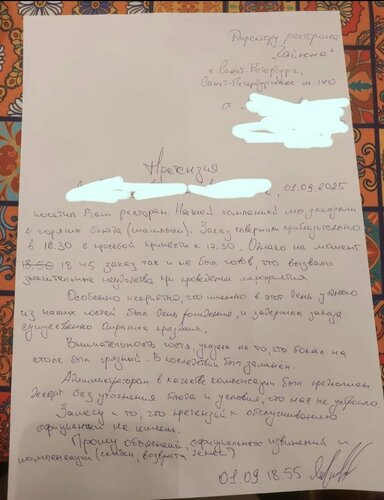 Директору ресторана
"Сайгона"
г. Санкт-Петербург,
Санкт-Петербургское ш 140
от
Претензия
01.09.2025
посетил Ваш ресторан. Нашей компанией мы заказали
4 горячих блюда (шашлыки). Заказ совершили приблизительно
в 16.30 с просьбой принести к 17.30. Однако на момент
18.50 18.45 заказ так и не был готов что вызвало
значительные неудобства при проведении мероприятия.
Особенно неприятно, что именно в этот день у одного
из наших гостей был день рождения, и задержка заказа
существенно омрачила праздник.
Внимательность гостя, упала на то, что бокал на
столе был грязный. В последствии был заменен.
Администратором в качестве компенсации был предложен
десерт без уточнения блюда и условия, что нас не устроило
Замечу и то, что претензий к обслуживанию
официантки не имеем.
Прошу объяснений, официальных извинений и
компенсации (скидки, возврата денег)
01.09 18.55